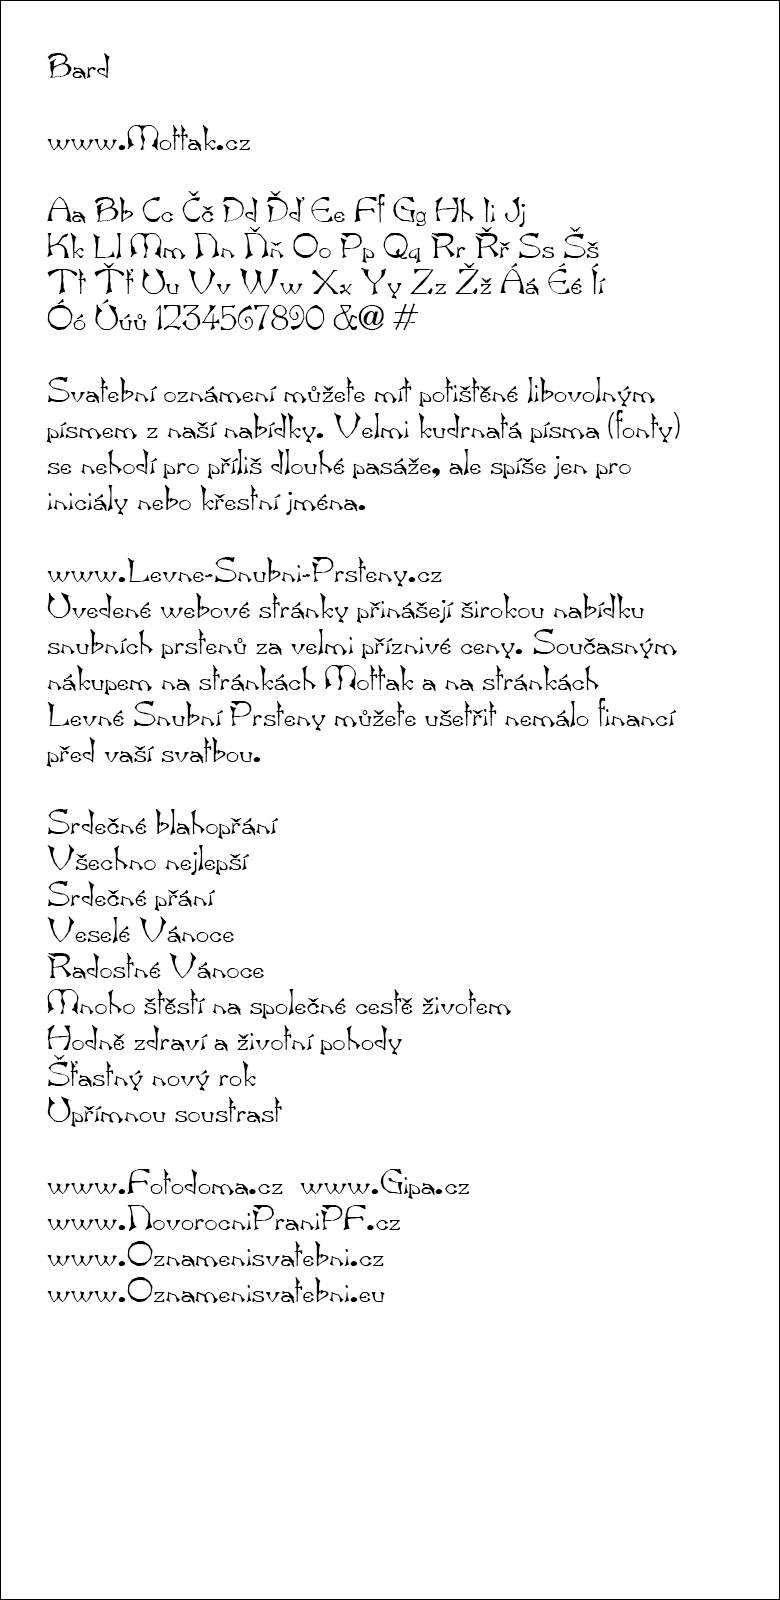 Bard
www.Mottak.cz
Aa Bb Cc Čč Dd Ďď Ee Ff Gg Hh Ii Jj
Kk Ll Mm Nn Ňň Oo Pp Qq Rr Řř Ss Šš
Tt Ťť Uu Vv Ww Xx Yy Zz Žž Áá Éé Íí
Óó Úúů 1234567890 &@ #
Svatební oznámení můžete mít potištěné libovolným
písmem z naší nabídky. Velmi kudrnatá písma (fonty)
se nehodí pro příliš dlouhé pasáže, ale spíše jen pro
iniciály nebo křestní jména.
www.Levne-Snubni-Prsteny.cz
Uvedené webové stránky přinášejí širokou nabídku
snubních prstenů za velmi příznivé ceny. Současným
nákupem na stránkách Mottak a na stránkách
Levné Snubní Prsteny můžete ušetřit nemálo financí
před vaší svatbou.
Srdečné blahopřání
Všechno nejlepší
Srdečné přání
Veselé Vánoce
Radostné Vánoce
Mnoho štěstí na společné cestě životem
Hodně zdraví a životní pohody
Šťastný nový rok
Upřímnou soustrast
www.Fotodoma.cz www.Gipa.cz
www.NovorocniPraniPF.cz
www.Oznamenisvatebni.cz
www.Oznamenisvatebni.eu